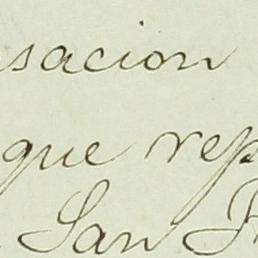 sacion
que rep
San F